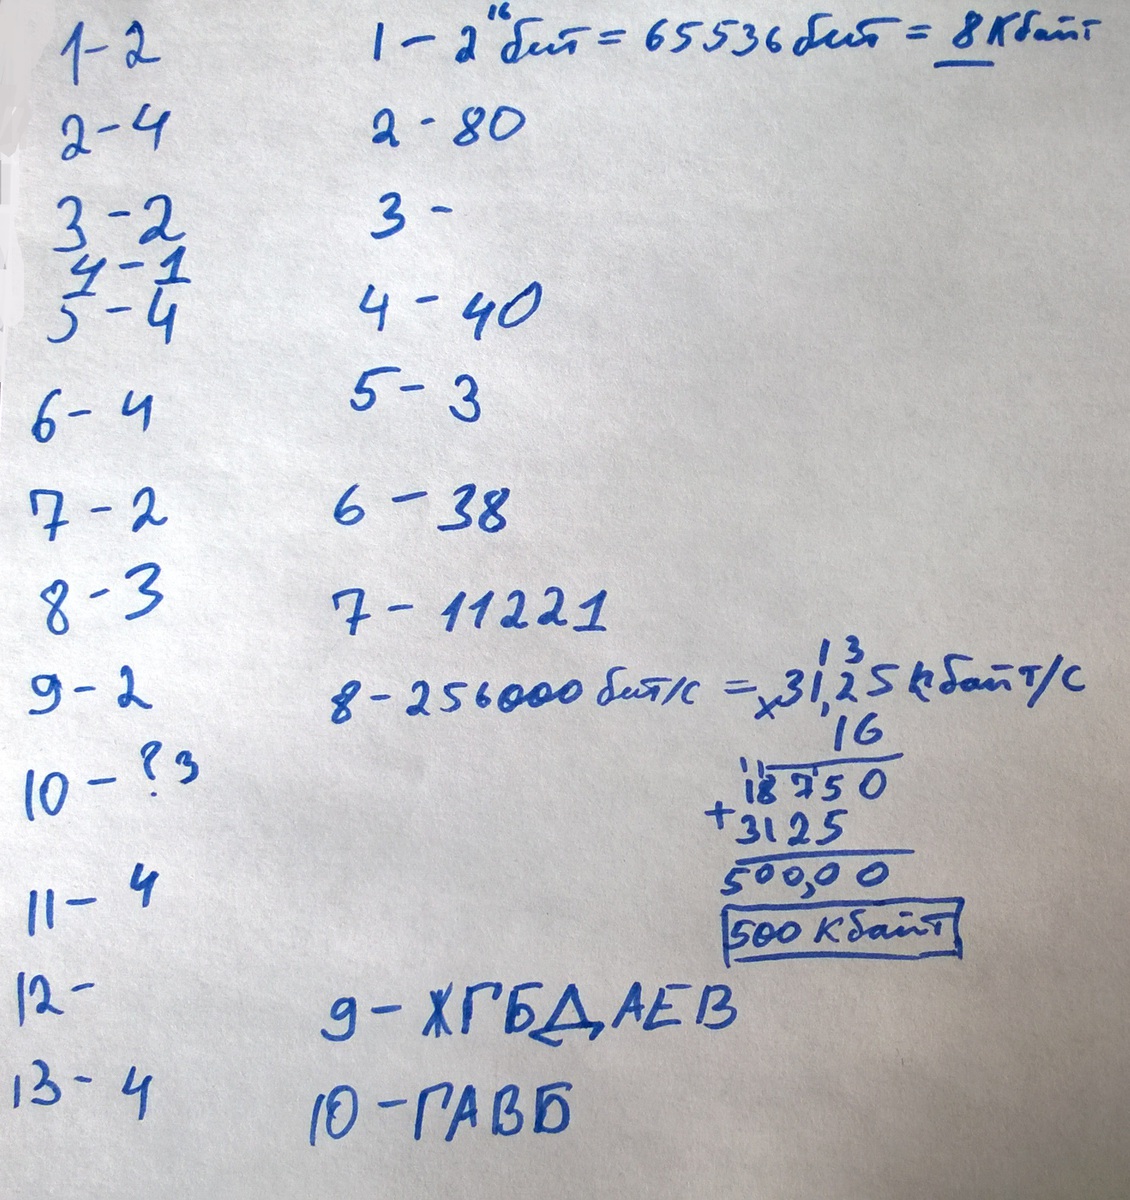 1-2
2-4
3-2
4-1
5-4
6-4
7-2
8-3
9-2
10-?3
11-4
12-
13-4
1-2¹⁶бит=65536бит=8Кбайт
2-80
3-
4-40
5-3
6-38
7-11221
8-256000бит/с=31,25Кбайт/с
13
×
16
11 1
18750
+
3125
500,00
500 Кбайт
9-ЖГБДАЕВ
10-ГАВБ